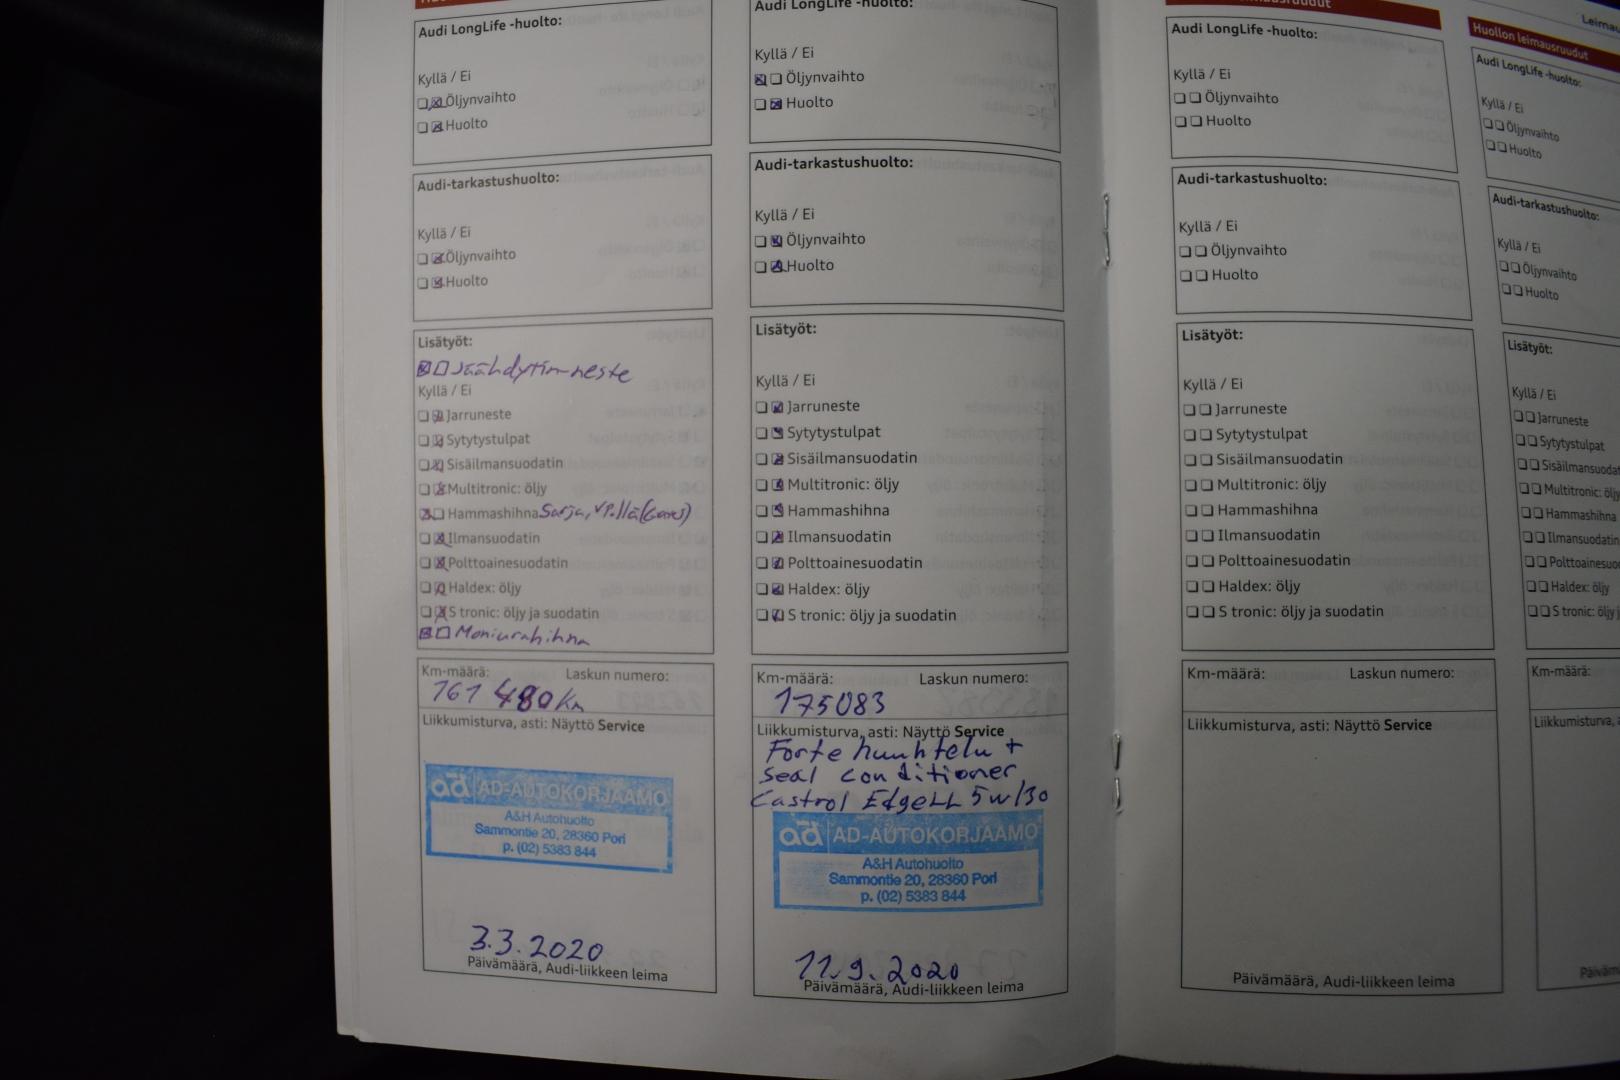 Audi LongLife -huolto:
Kyllä / Ei
Öljynvaihto
Huolto
Audi-tarkastushuolto:
Kyllä / Ei
Öljynvaihto
Huolto
Lisätyöt:
Jäähdytinneste
Kyllä / Ei
Jarruneste
Sytytystulpat
Sisäilmansuodatin
Multitronic: öljy
Hammashihna Sarja,
Ilmansuodatin
Polttoainesuodatin
Haldex: öljy
S tronic: öljy ja suodatin
Moniurahihna
Km-määrä: Laskun numero:
161 480 Km
Liikkumisturva, asti: Näyttö Service
ad AD-AUTOKORJAAMO
A&H Autohuolto
Sammontie 20, 28360 Pori
p. (02) 5383 844
3.3.2020
Päivämäärä, Audi-liikkeen leima
Audi LongLife -huolto:
Kyllä / Ei
Öljynvaihto
Huolto
Audi-tarkastushuolto:
Kyllä / Ei
Öljynvaihto
Huolto
Lisätyöt:
Kyllä / Ei
Jarruneste
Sytytystulpat
Sisäilmansuodatin
Multitronic: öljy
Hammashihna
Ilmansuodatin
Polttoainesuodatin
Haldex: öljy
S tronic: öljy ja suodatin
Km-määrä: Laskun numero:
175083
Liikkumisturva, asti: Näyttö Service
Forte huuhtelu +
seal conditioner
Castrol Edge LL 5w/30
ad AD-AUTOKORJAAMO
A&H Autohuolto
Sammontie 20, 28360 Pori
p. (02) 5383 844
11.9.2020
Päivämäärä, Audi-liikkeen leima
leimausruudut
Audi LongLife -huolto:
Kyllä / Ei
Öljynvaihto
Huolto
Audi-tarkastushuolto:
Kyllä / Ei
Öljynvaihto
Huolto
Lisätyöt:
Kyllä / Ei
Jarruneste
Sytytystulpat
Sisäilmansuodatin
Multitronic: öljy
Hammashihna
Ilmansuodatin
Polttoainesuodatin
Haldex: öljy
S tronic: öljy ja suodatin
Km-määrä: Laskun numero:
Liikkumisturva, asti: Näyttö Service
Päivämäärä, Audi-liikkeen leima
Leimau
Huollon leimausruudut
Audi LongLife -huolto:
Kyllä / Ei
Öljynvaihto
Huolto
Audi-tarkastushuolto:
Kyllä / Ei
Öljynvaihto
Huolto
Lisätyöt:
Kyllä / Ei
Jarruneste
Sytytystulpat
Sisäilmansuodat
Multitronic: öljy
Hammashihna
Ilmansuodatin
Polttoainesuo
Haldex: öljy
S tronic: öljy j
Km-määrä:
Liikkumisturva, a
Päiväm